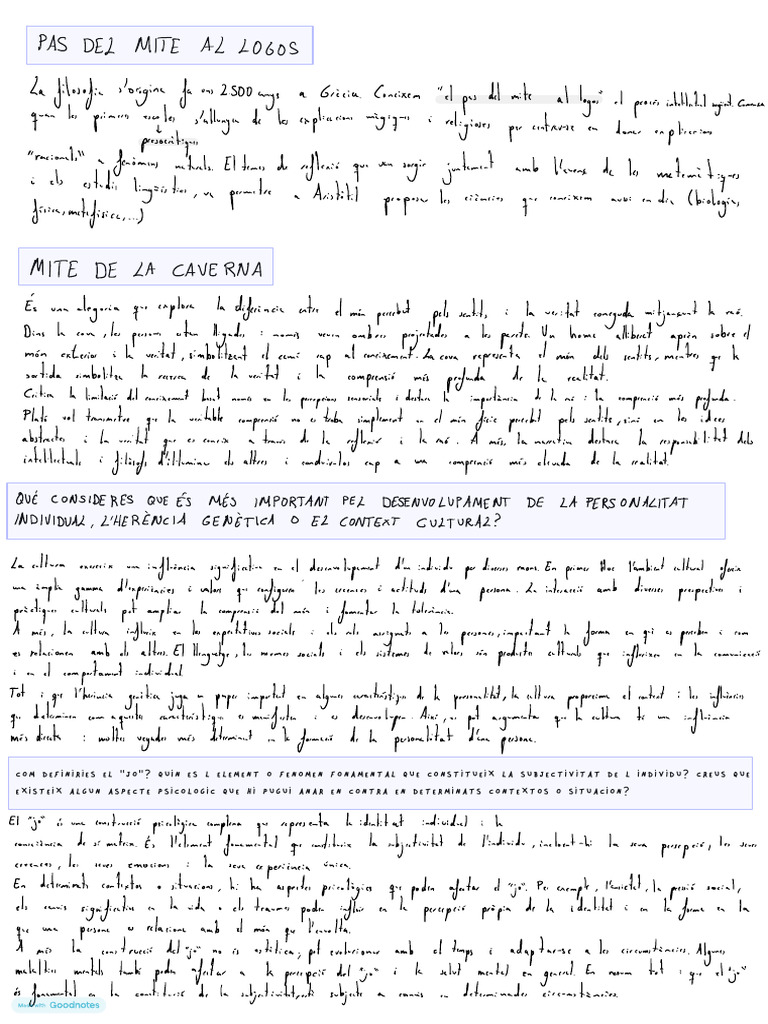 PAS DEL MITE AL LOGOS
La filosofia s'origina fa uns 2500 anys a Grècia. Coneixem "el pas del mite al logos" el procés intel·lectual Comença
quan les primeres escoles s'allunyen de les explicacions màgiques i religioses per centrar-se en donar explicacions
presocràtiques
"racionals" a fenòmens naturals. El temes de reflexió que van sorgir juntament amb l'avenç de les matemàtiques
i els estudis lingüístics, va permetre a Aristòtil proposar les ciències que coneixem avui en dia (biologia,
física, metafísica,...)
MITE DE LA CAVERNA
És una alegoria que explora la diferència entre el món percebut pels sentits, i la veritat coneguda mitjançant la raó.
Dins la cova, les persones estan lligades i només veuen ombres projectades a les parets. Un home alliberat aprèn sobre el
món exterior i la veritat, simbolitzant el camí cap al coneixement. La cova representa el món dels sentits, mentres que la
sortida simbolitza la recerca de la veritat i la comprensió més profunda de la realitat.
Critica la limitació del coneixement basat només en les percepcions sensorials i destaca la importància de la raó i la comprensió més profunda.
Plató vol transmetre que la veritable comprensió no es troba simplement en el món físic percebut pels sentits, sinó en les idees
abstractes i la veritat que es coneix a traves de la reflexió i la raó. A més, la narrativa destaca la responsabilitat dels
intel·lectuals i filòsofs d'il·luminar els altres i conduir-los cap a una comprensió més elevada de la realitat.
QUÈ CONSIDERES QUE ÉS MÉS IMPORTANT PEL DESENVOLUPAMENT DE LA PERSONALITAT
INDIVIDUAL, L'HERÈNCIA GENÈTICA O EL CONTEXT CULTURAL?
La cultura exerceix una influència significativa en el desenvolupament d'un individu per diverses raons. En primer lloc l'ambient cultural ofereix
una àmplia gamma d'experiències i valors que configuren les creences i actituds d'una persona. La interacció amb diverses perspectives i
pràctiques culturals pot ampliar la comprensió del món i fomentar la tolerància.
A més, la cultura influeix en les expectatives socials i els rols assignats a les persones, impactant la forma en què es perceben i com
es relacionen amb els altres. El llenguatge, les normes socials i els sistemes de valors són productes culturals que influeixen en la comunicació
i en el comportament individual.
Tot i que l'herència genètica juga un paper important en algunes característiques de la personalitat, la cultura proporciona el context i les influències
que determinen com aquestes característiques es manifesten i es desenvolupen. Així, es pot argumentar que la cultura té una influència
més directa i moltes vegades més determinant en la formació de la personalitat d'una persona.
COM DEFINIRIES EL "JO"? QUIN ES L ELEMENT O FENOMEN FONAMENTAL QUE CONSTITUEIX LA SUBJECTIVITAT DE L INDIVIDU? CREUS QUE
EXISTEIX ALGUN ASPECTE PSICOLOGIC QUE HI PUGUI ANAR EN CONTRA EN DETERMINATS CONTEXTOS O SITUACION?
El "jo" és una construcció psicològica complexa que representa la identitat individual i la
consciència de si mateix. És l'element fonamental que constitueix la subjectivitat de l'individu, incloent-hi la seva percepció, les seves
creences, les seves emocions i la seva experiència única.
En determinats contextos o situacions, hi ha aspectes psicològics que poden afectar el "jo". Per exemple, l'ansietat, la pressió social,
els canvis significatius en la vida o els traumes poden influir en la percepció pròpia de la identitat i en la forma en la
que una persona es relaciona amb el món que l'envolta.
A més la construcció del "jo" no és estàtica, pot evolucionar amb el temps i adaptar-se a les circumstàncies. Algunes
malalties mentals també poden afectar a la percepció del "jo" i la salut mental en general. En resum tot i que el "jo"
és fonamental en la constitució de la subjectivitat, està subjecte a canvis en determinades circumstàncies.
Made with Goodnotes